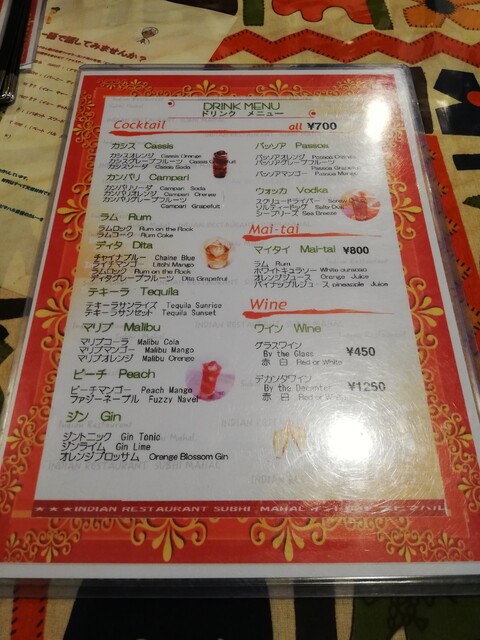 一届で話してみませんか?
DRINK MENU
ドリンク メニュー
Cocktail all ¥700
カシス Cassis
カシスオレンジ Cassis Orange
カシスグレープフルーツ Cassis Grapefruit
カシスソーダ Cassis Soda
カンパリ Campari
カンパリソーダ Campari Soda
カンパリオレンジ Campari Orange
カンパリグレープフルーツ
Campari Grapefruit
ラム Rum
ラムロック Rum on the Rock
ラムコーク Rum Coke
ディタ Dita
チャイナブルー Chaine Blue
ライチマンゴー Litchi Mango
ラムロック Rum on the Rock
ディタグレープフルーツ Dita Grapefruit
テキーラ Tequila
テキーラサンライズ Tequila Sunrise
テキーラサンセット Tequila Sunset
マリブ Malibu
マリブコーラ Malibu Cola
マリブマンゴー Malibu Mango
マリブオレンジ Malibu Orange
ピーチ Peach
ピーチマンゴー Peach Mango
ファジーネーブル Fuzzy Navel
ジン Gin
ジントニック Gin Tonic
ジンライム Gin Lime
オレンジブロッサム Orange Blossom Gin
パッソア Passoa
パッソアオレンジ Passoa Orange
パッソアグレープフルーツ
Passoa Grapefruit
パッソアマンゴー Passoa Mango
ウォッカ Vodka
スクリュードライバー
ソルティードッグ Salty Dog
シーブリーズ Sea Breeze
Mai-tai
マイタイ Mai-tai ¥800
ラム Rum
ホワイトキュラソー White curacao
オレンジジュース Orange Juice
パイナップルジュース pineapple Juice
Wine
ワイン Wine
グラスワイン
By the Glass ¥450
赤 白 Red or White
デカンタワイン
By the Decanter ¥1250
赤 白 Red or White
INDIAN RESTAURANT SUBHI MAHAL
★★★INDIAN RESTAURANT SUBHI MAHAL